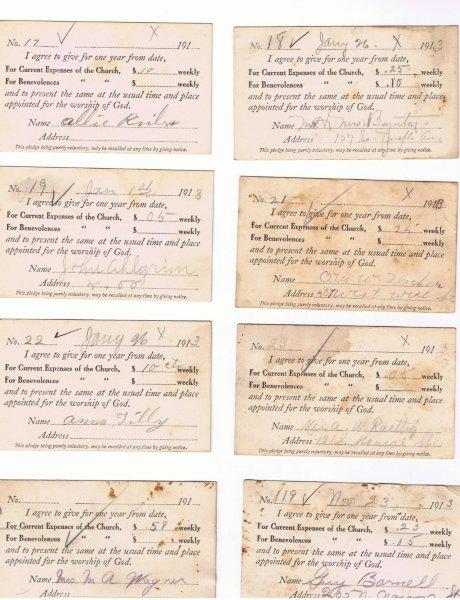 No. 17 191
I agree to give for one year from date,
For Current Expenses of the Church, $ 10 weekly
For Benevolences " " $ weekly
and to present the same at the usual time and place
appointed for the worship of God.
Name Allie
Address
This pledge being purely voluntary, may be recalled at any time by giving notice.
No. 18 Jany 26. X 1913
I agree to give for one year from date,
For Current Expenses of the Church, $ .25 weekly
For Benevolences " " $ .10 weekly
and to present the same at the usual time and place
appointed for the worship of God.
Name Mr & Mrs.
Address 107 So
This pledge being purely voluntary, may be recalled at any time by giving notice.
No. 19 Jan 1913
I agree to give for one year from date,
For Current Expenses of the Church, $ 05 weekly
For Benevolences " " $ weekly
and to present the same at the usual time and place
appointed for the worship of God.
Name John Ahlgrim
Address
This pledge being purely voluntary, may be recalled at any time by giving notice.
No. 21 X 1913
I agree to give for one year from date,
For Current Expenses of the Church, $ 25 weekly
For Benevolences " " $ weekly
and to present the same at the usual time and place
appointed for the worship of God.
Name
Address
This pledge being purely voluntary, may be recalled at any time by giving notice.
No. 22 Jany 26 X 1913
I agree to give for one year from date,
For Current Expenses of the Church, $ 10 ct weekly
For Benevolences " " $ weekly
and to present the same at the usual time and place
appointed for the worship of God.
Name Anna Tilly
Address
This pledge being purely voluntary, may be recalled at any time by giving notice.
No. 23 X 1913
I agree to give for one year from date,
For Current Expenses of the Church, $ .05 weekly
For Benevolences " " $ weekly
and to present the same at the usual time and place
appointed for the worship of God.
Name A. W.
Address
This pledge being purely voluntary, may be recalled at any time by giving notice.
No. 191
I agree to give for one year from date,
For Current Expenses of the Church, $ 58 weekly
For Benevolences " " $ weekly
and to present the same at the usual time and place
appointed for the worship of God.
Name Mrs. M A Wagner
No. 119 Nov. 23 1913
I agree to give for one year from date,
For Current Expenses of the Church, $ 25 weekly
For Benevolences " " $ 15 weekly
and to present the same at the usual time and place
appointed for the worship of God.
Name Guy Barnell
Address